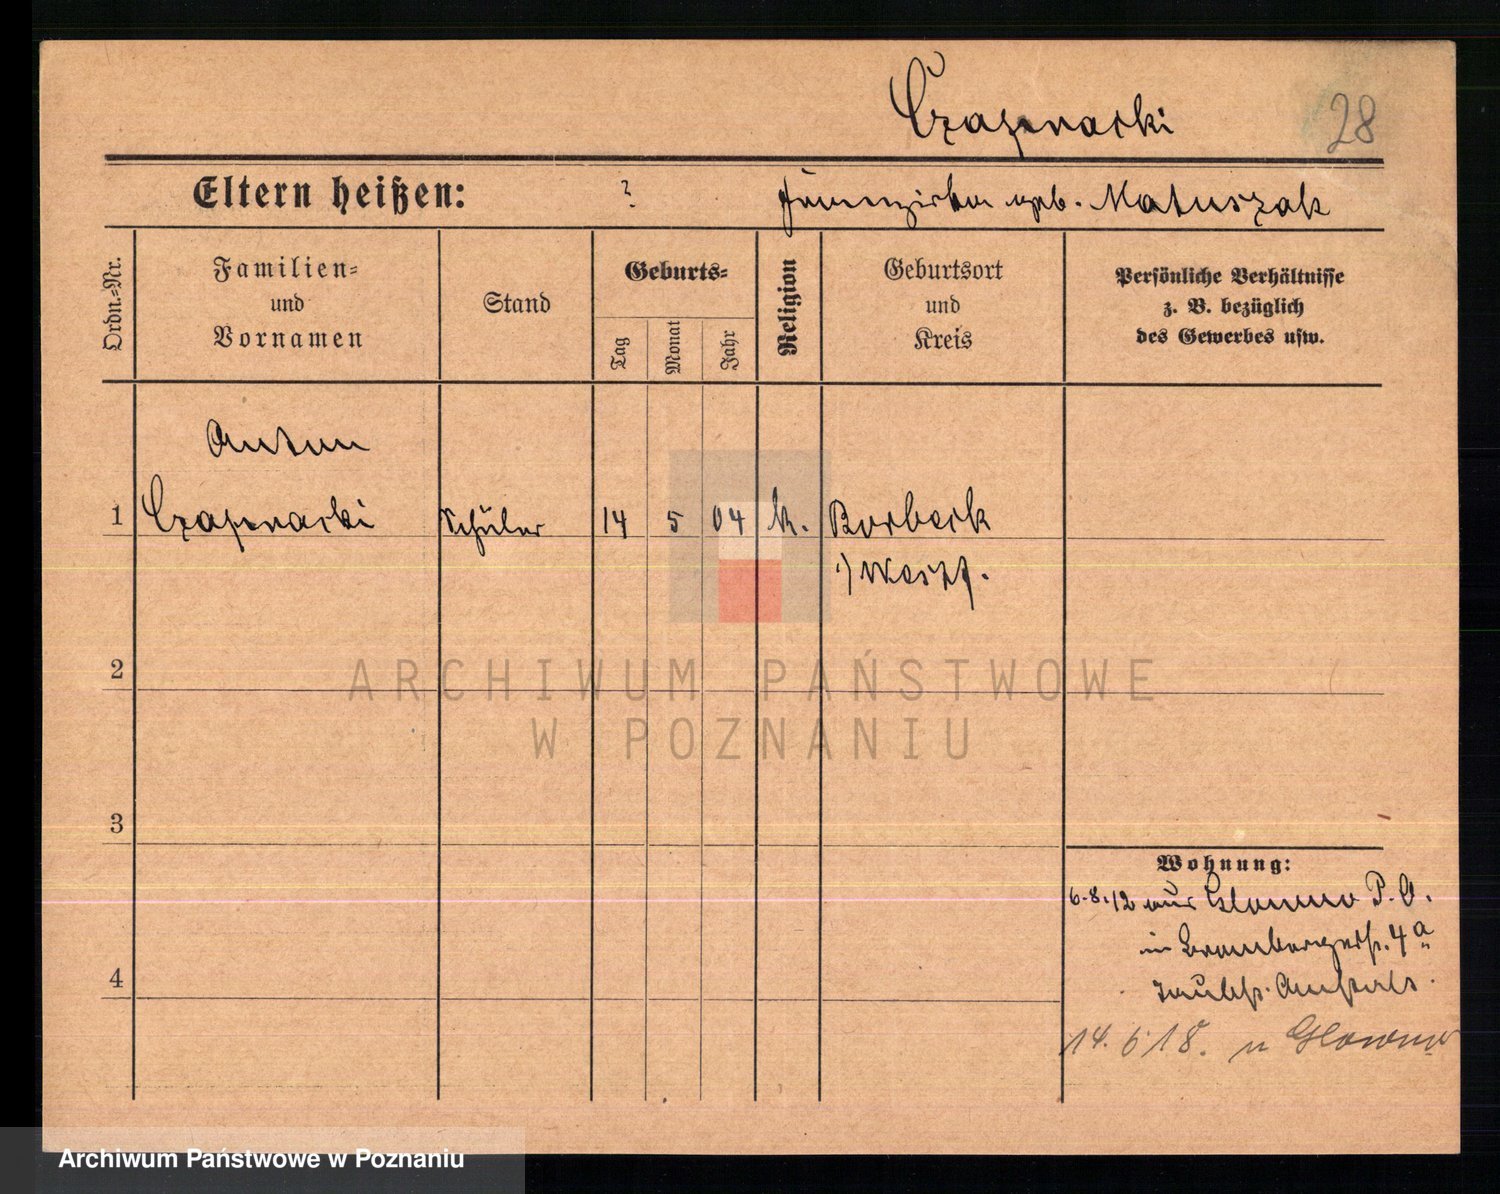 Czapracki
28
Eltern heißen: ? Franziska geb. Matuszak
Ordn.=Nr.
Familien=
und
Vornamen
Stand
Geburts=
Tag
Monat
Jahr
Religion
Geburtsort
und
Kreis
Persönliche Verhältnisse
z. B. bezüglich
des Gewerbes usw.
Anton
1 Czapracki Schüler 14 5 04 k. Borbeck
i/ Westf.
2
3
4
Wohnung:
6.8.12 aus Glowno P.O.
in Brombergerstr. 4a
Taubst. Anstalt.
14. 6 18. n Glowno
ARCHIWUM PAŃSTWOWE
W POZNANIU
Archiwum Państwowe w Poznaniu